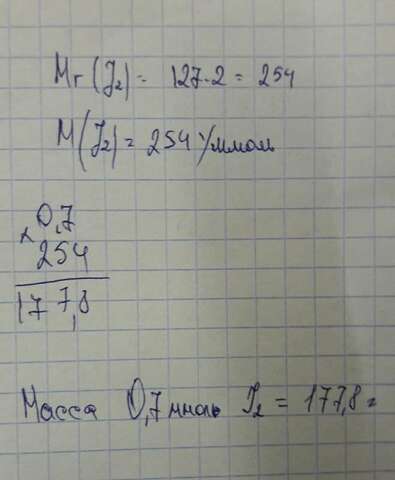 Mr (J₂) = 127·2 = 254
M(J₂) = 254 г/ммоль
× 0,7
254
177,8
Масса 0,7 ммоль J₂ = 177,8 г